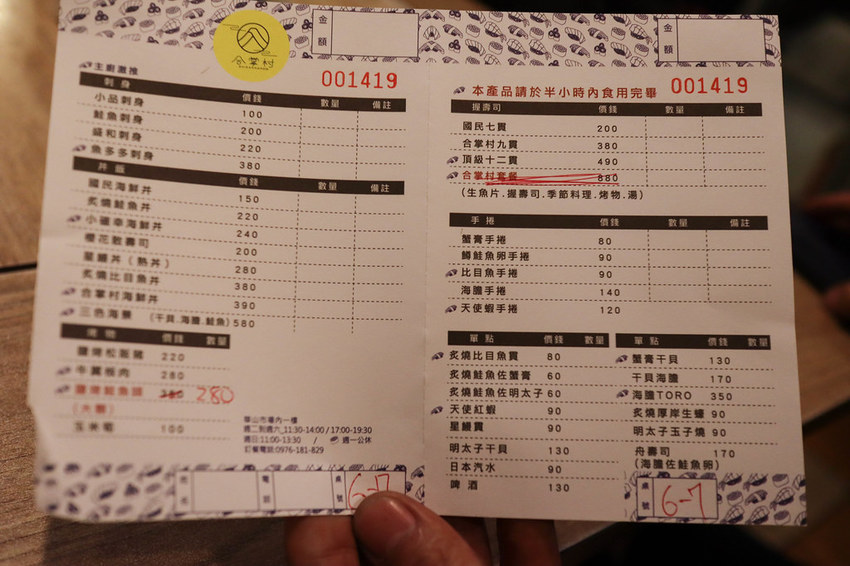 合掌村
金額
001419
主廚激推
刺身 價錢 數量 備註
小品刺身 100
鮭魚刺身 200
盛和刺身 220
魚多多刺身 380
丼飯 價錢 數量 備註
國民海鮮丼 150
炙燒鮭魚丼 220
小確幸海鮮丼 240
櫻花散壽司 200
星鰻丼(熟丼) 280
炙燒比目魚丼 380
合掌村海鮮丼 390
三色海景 (干貝.海膽.鮭魚) 580
烤物 價錢 數量
鹽烤松阪豬 220
牛翼板肉 280
鹽烤鮭魚頭 380 280
玉米筍 100
華山市場內一樓
週二到週六_11:30-14:00 / 17:00-19:30
週日:11:00-13:30 / 週一公休
訂餐電話:0976-181-829
桌號 6-7
金額
001419
本產品請於半小時內食用完畢
握壽司 價錢 數量 備註
國民七貫 200
合掌村九貫 380
頂級十二貫 490
合掌村套餐 880
(生魚片.握壽司.季節料理.烤物.湯)
手捲 價錢 數量 備註
蟹膏手捲 80
鱒鮭魚卵手捲 90
比目魚手捲 90
海膽手捲 140
天使蝦手捲 120
單點 價錢 數量
炙燒比目魚貫 80
炙燒鮭魚佐蟹膏 60
炙燒鮭魚佐明太子 60
天使紅蝦 90
星鰻貫 90
明太子干貝 130
日本汽水 90
啤酒 130
單點 價錢 數量
蟹膏干貝 130
干貝海膽 170
海膽TORO 350
炙燒厚岸生蠔 90
明太子玉子燒 90
舟壽司 170
(海膽佐鮭魚卵)
桌號 6-7